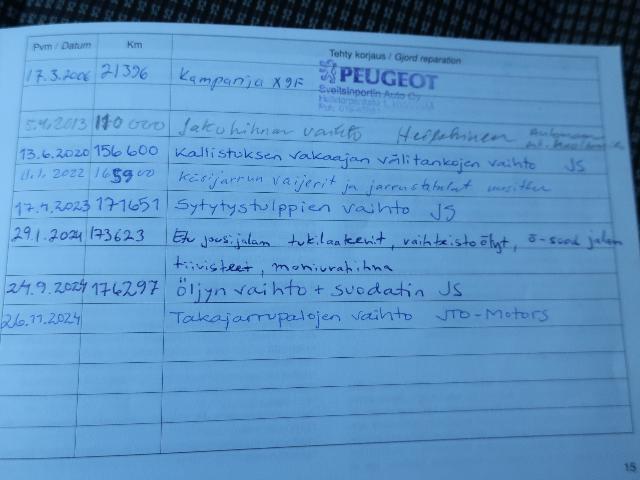 Pvm / Datum Km Tehty korjaus / Gjord reparation
17.3.2006 21396 Kampanja X9F PEUGEOT
Sveitsinportin Auto Oy
5.4.2013 110 000 Jakohihnan vaihto
13.6.2020 156 600 Kallistuksen vakaajan välitankojen vaihto JS
11.1.2022 165900 Käsijarrun vaijerit ja
17.4.2023 171651 Sytytystulppien vaihto JS
29.1.2024 173623 Etu jousijalan tukilaakerit, vaihteistoöljyt, ö-suod jalan
tiivisteet, moniurahihna
24.9.2024 176297 Öljyn vaihto + suodatin JS
26.11.2024 Takajarrupalojen vaihto JTO-Motors
15